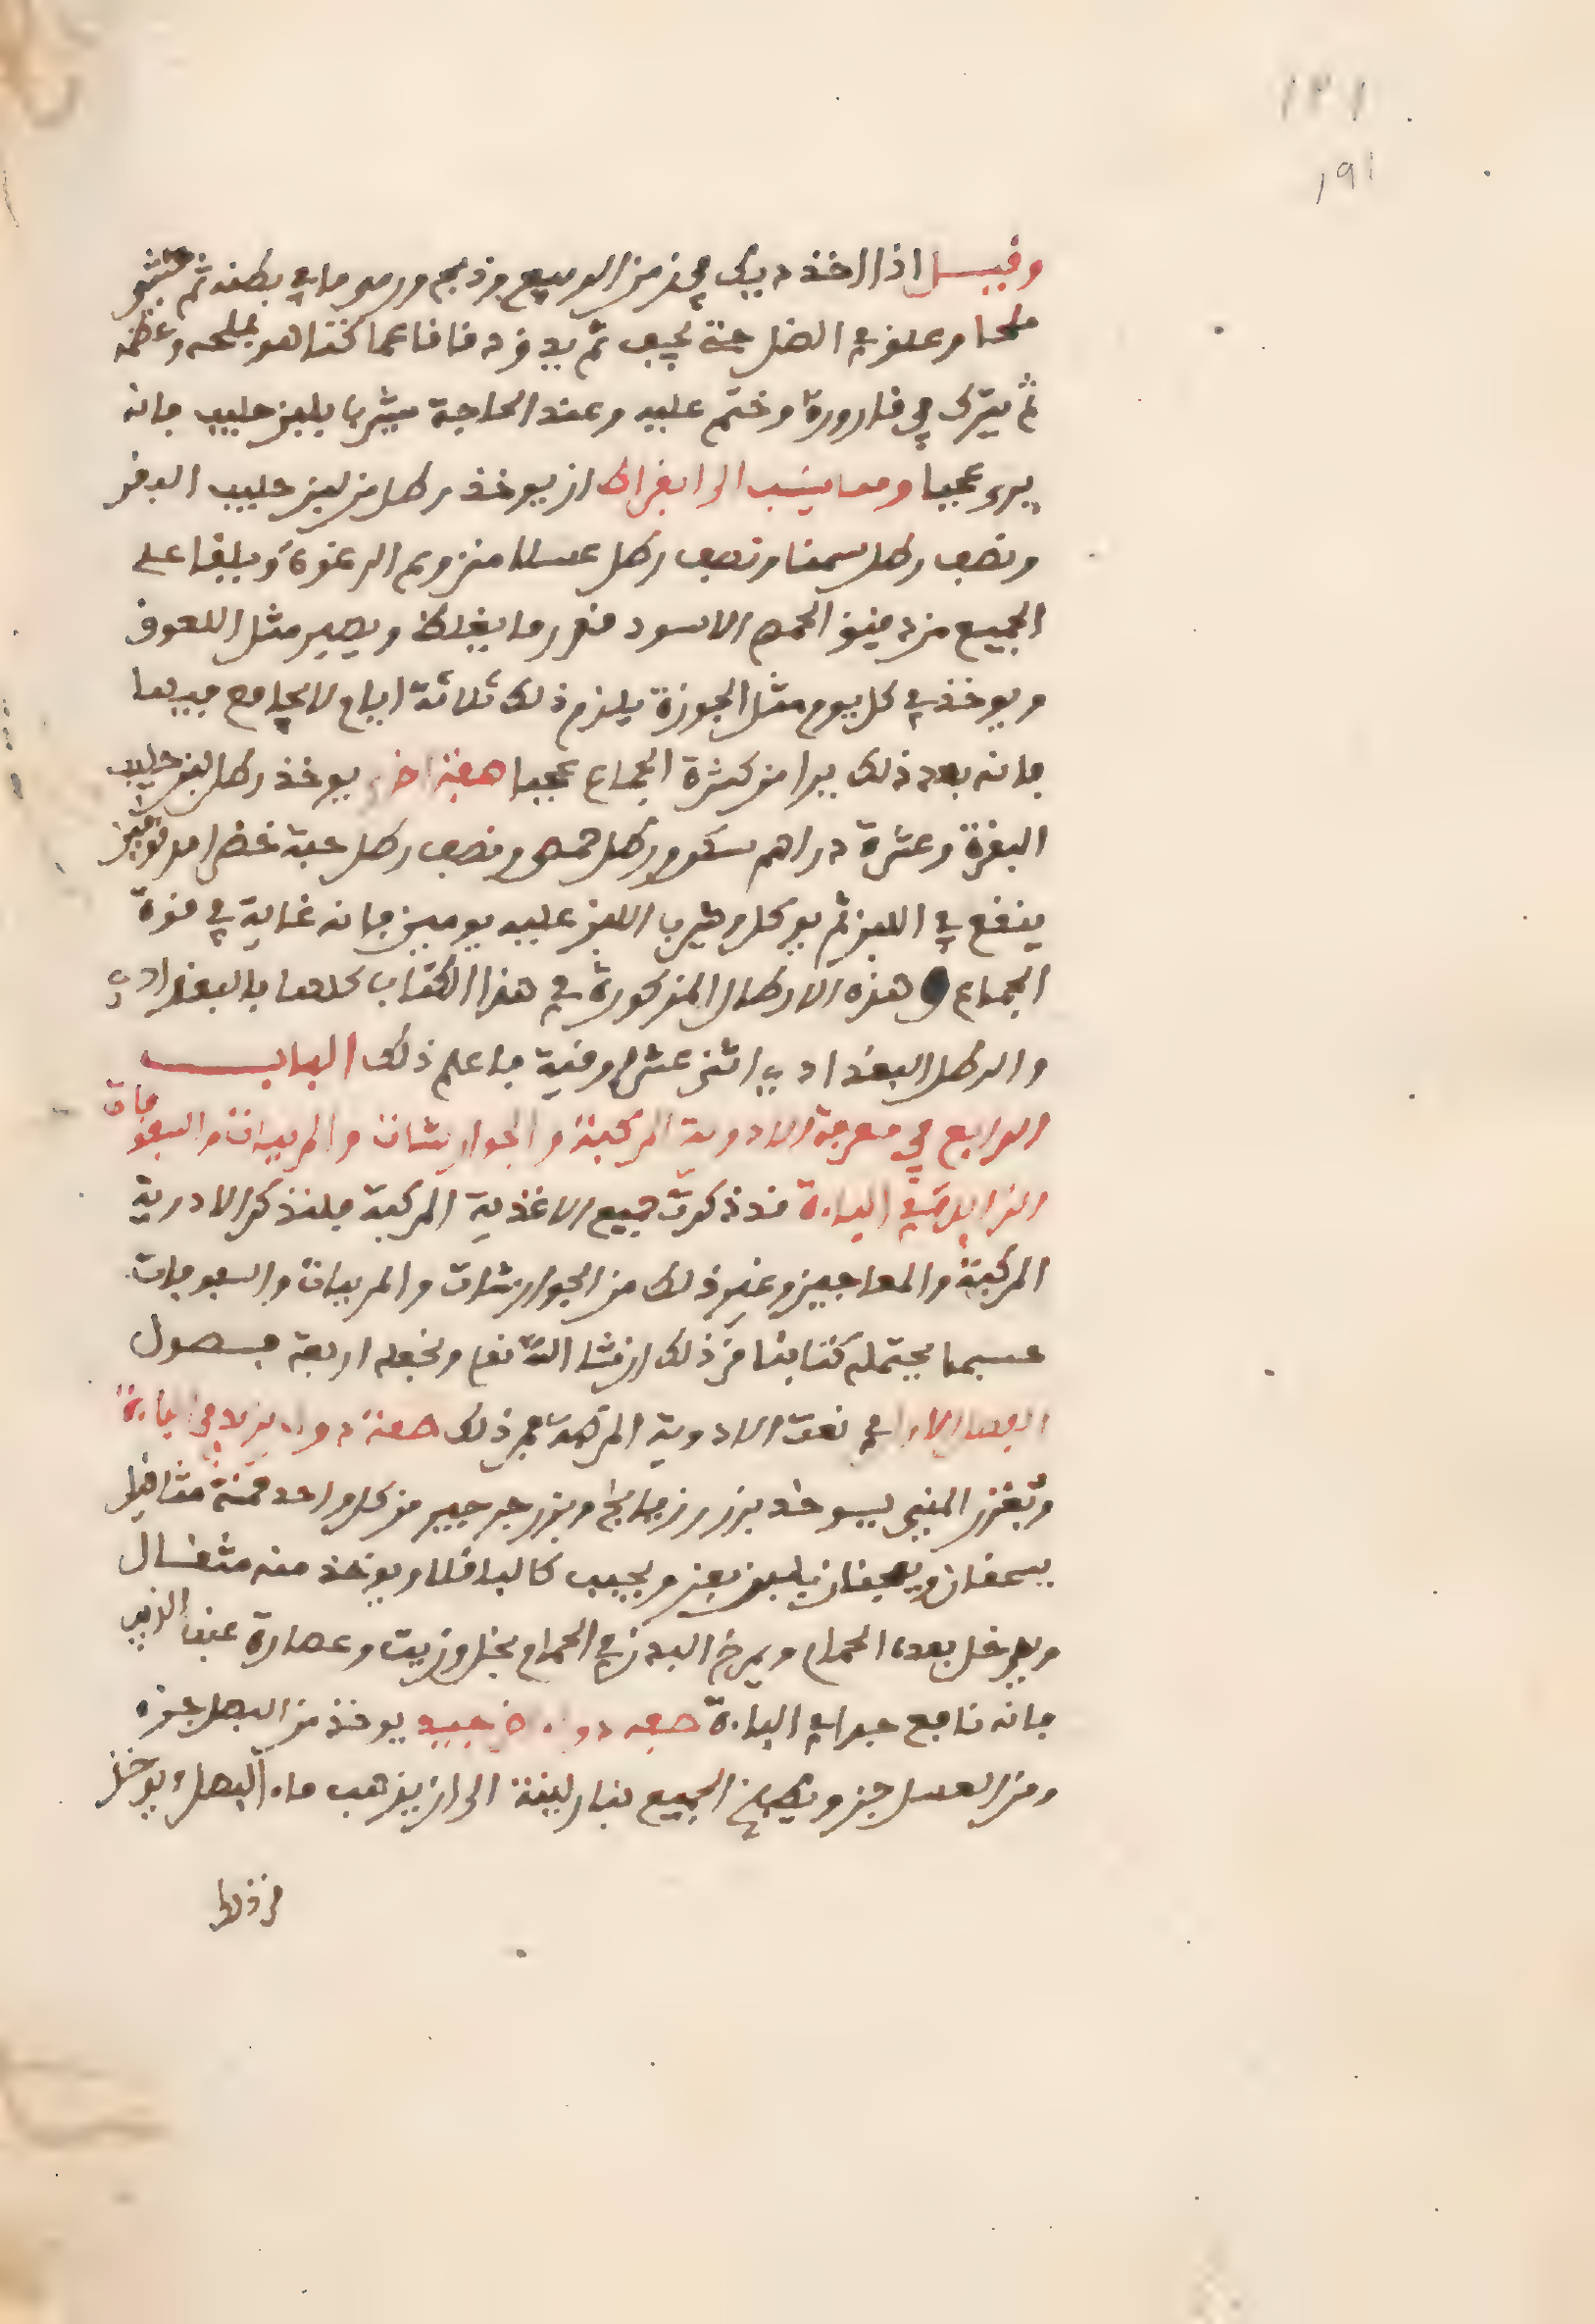 ١٣١
١٩١
وقيل اذا اخذ ديك في زمن الربيع وذبح ورمي ما في بطنه ثم حشي
ملحا وعلق في الظل حتى يجف ثم يدق دقا ناعما كما هو بملحه وعظمه
ثم يترك في قارورة وختم عليه وعند الحاجة يشرب بلبن حليب فانه
يرى عجبا ومما ينسب الى ابقراط ان يوخذ رطل من لبن حليب البقر
ونصف رطل سمنا ونصف رطل عسلا منزوع الرغوة ويلقا على
الجميع من دقيق الحمص الاسود قدر ما يغلظ ويصير مثل اللعوق
ويوخذ في كل يوم مثل الجوزة يلزم ذلك ثلاثة ايام لا يجامع فيها
فانه بعد ذلك يرا من كثرة الجماع عجبا صفة اخرى يوخذ رطل لبن حليب
البقرة وعشرة دراهم سكر ورطل حمص ونصف رطل حبة خضرا مدقوقين
ينقع في اللبن ثم يوكل وشرب اللبن عليه يومين فانه غاية في قوة
الجماع وهذه الارطال المذكورة في هذا الكتاب كلها بالبغدادي
والرطل البغدادي اثني عشر اوقية فاعلم ذلك الباب
الرابع في معرفة الادوية المركبة والجوارشات والمربيات والسفوفات
الزايدة في الباءة قد ذكرت جميع الاغذية المركبة فلنذكر الادوية
المركبة والمعاجين وغير ذلك من الجوارشات والمربيات والسفوفات
حسبما يحتمله كتابنا من ذلك ان شا الله تعلى ونجعله اربعة فصول
الفصل الاول في نعت الادوية المركبة فمن ذلك صفة دواء يزيد في الباءة
وتغزر المني يوخذ بزر رازيانج وبزر جرجير من كل واحد خمسة مثاقيل
يسحقان ويعجنان بلبن بقر ويحبب كالباقلا ويوخذ منه مثقال
ويدخل بعده الحمام ويمرخ البدن في الحمام بخل وزيت وعصارة عنب الذيب
فانه نافع جدا في الباءة صفة دواء اخر عجيب يوخذ من البصل جزء
ومن العسل جزو يطبخ الجميع بنار لينة الى ان يذهب ماء البصل ويوخذ
من ذلك